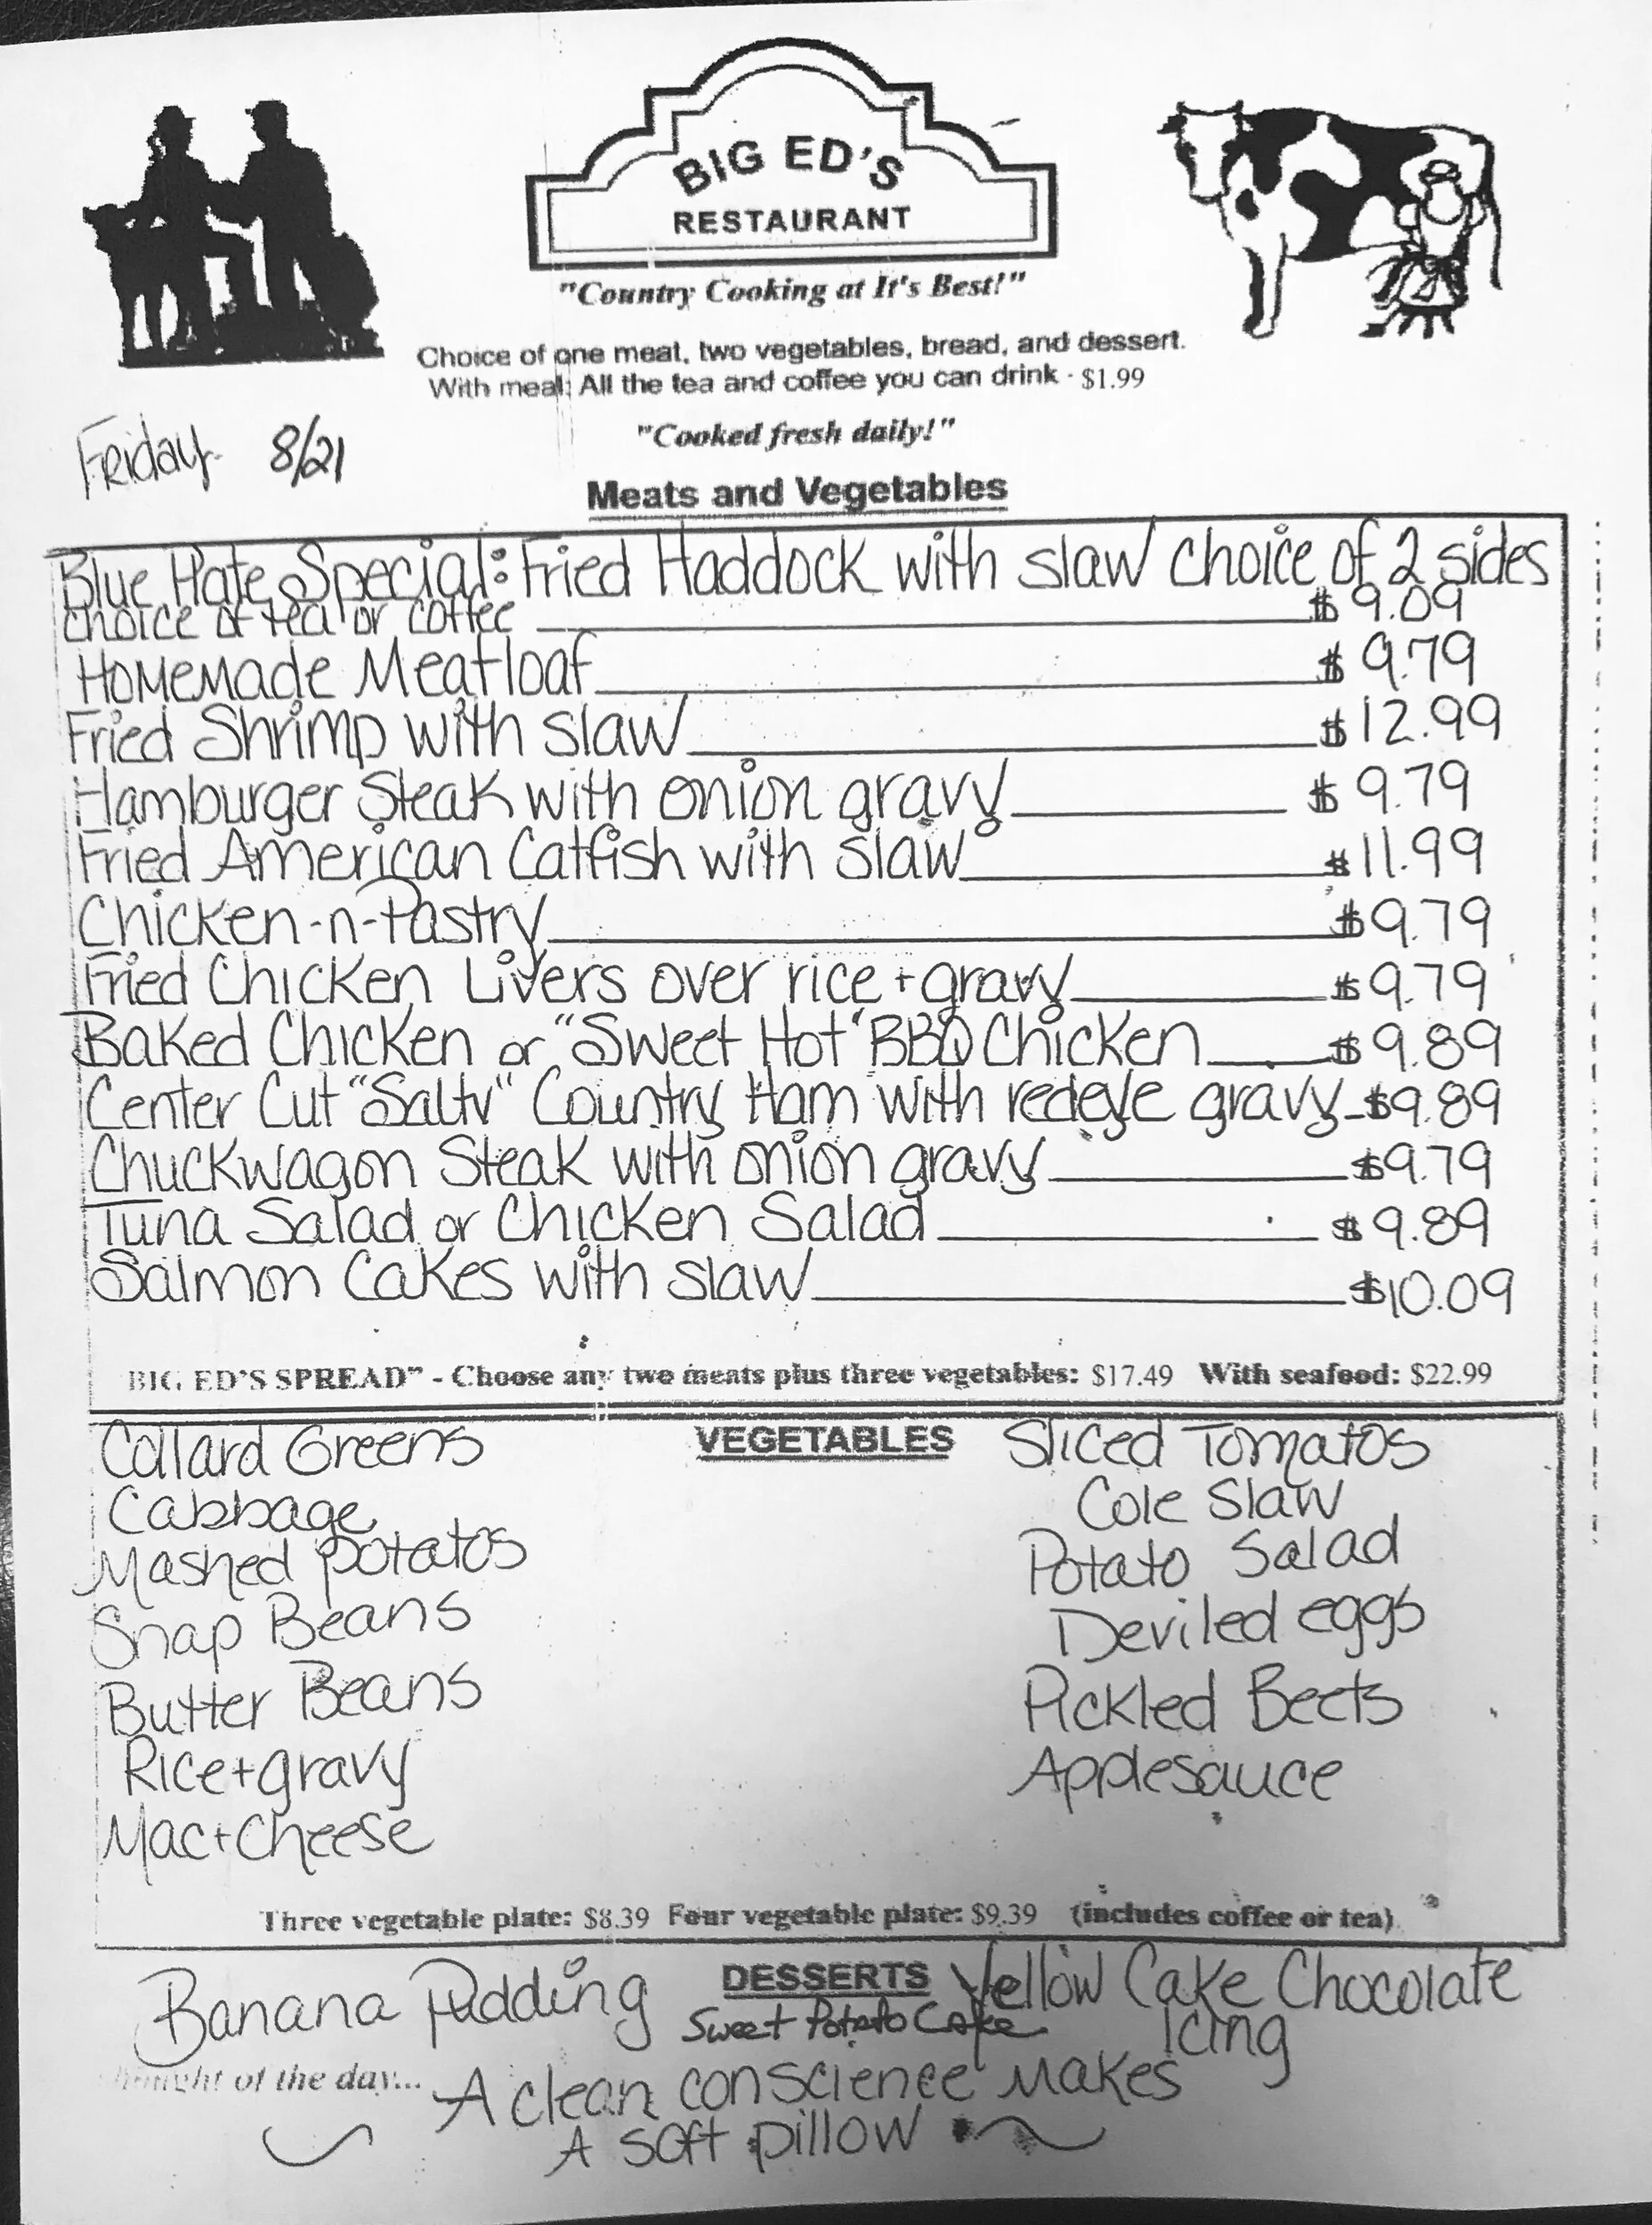 BIG ED'S
RESTAURANT
"Country Cooking at It's Best!"
Choice of one meat, two vegetables, bread, and dessert.
With meal: All the tea and coffee you can drink - $1.99
"Cooked fresh daily!"
Friday 8/21
Meats and Vegetables
Blue Plate Special: Fried Haddock with slaw choice of 2 sides
choice of tea or coffee $9.09
Homemade Meatloaf $9.79
Fried Shrimp with slaw $12.99
Hamburger Steak with onion gravy $9.79
Fried American Catfish with slaw $11.99
Chicken-n-Pastry $9.79
Fried Chicken Livers over rice + gravy $9.79
Baked Chicken or "Sweet Hot" BBQ Chicken $9.89
Center Cut "Salty" Country Ham with redeye gravy $9.89
Chuckwagon Steak with onion gravy $9.79
Tuna Salad or Chicken Salad $9.89
Salmon Cakes with slaw $10.09
BIG ED'S SPREAD" - Choose any two meats plus three vegetables: $17.49 With seafood: $22.99
VEGETABLES
Collard Greens
Cabbage
Mashed Potatos
Snap Beans
Butter Beans
Rice + gravy
Mac + Cheese
Sliced Tomatos
Cole Slaw
Potato Salad
Deviled eggs
Pickled Beets
Applesauce
Three vegetable plate: $8.39 Four vegetable plate: $9.39 (includes coffee or tea)
DESSERTS
Banana Pudding
Sweet Potato Cake
Yellow Cake Chocolate
Icing
of the day...
A clean conscience makes
A soft pillow